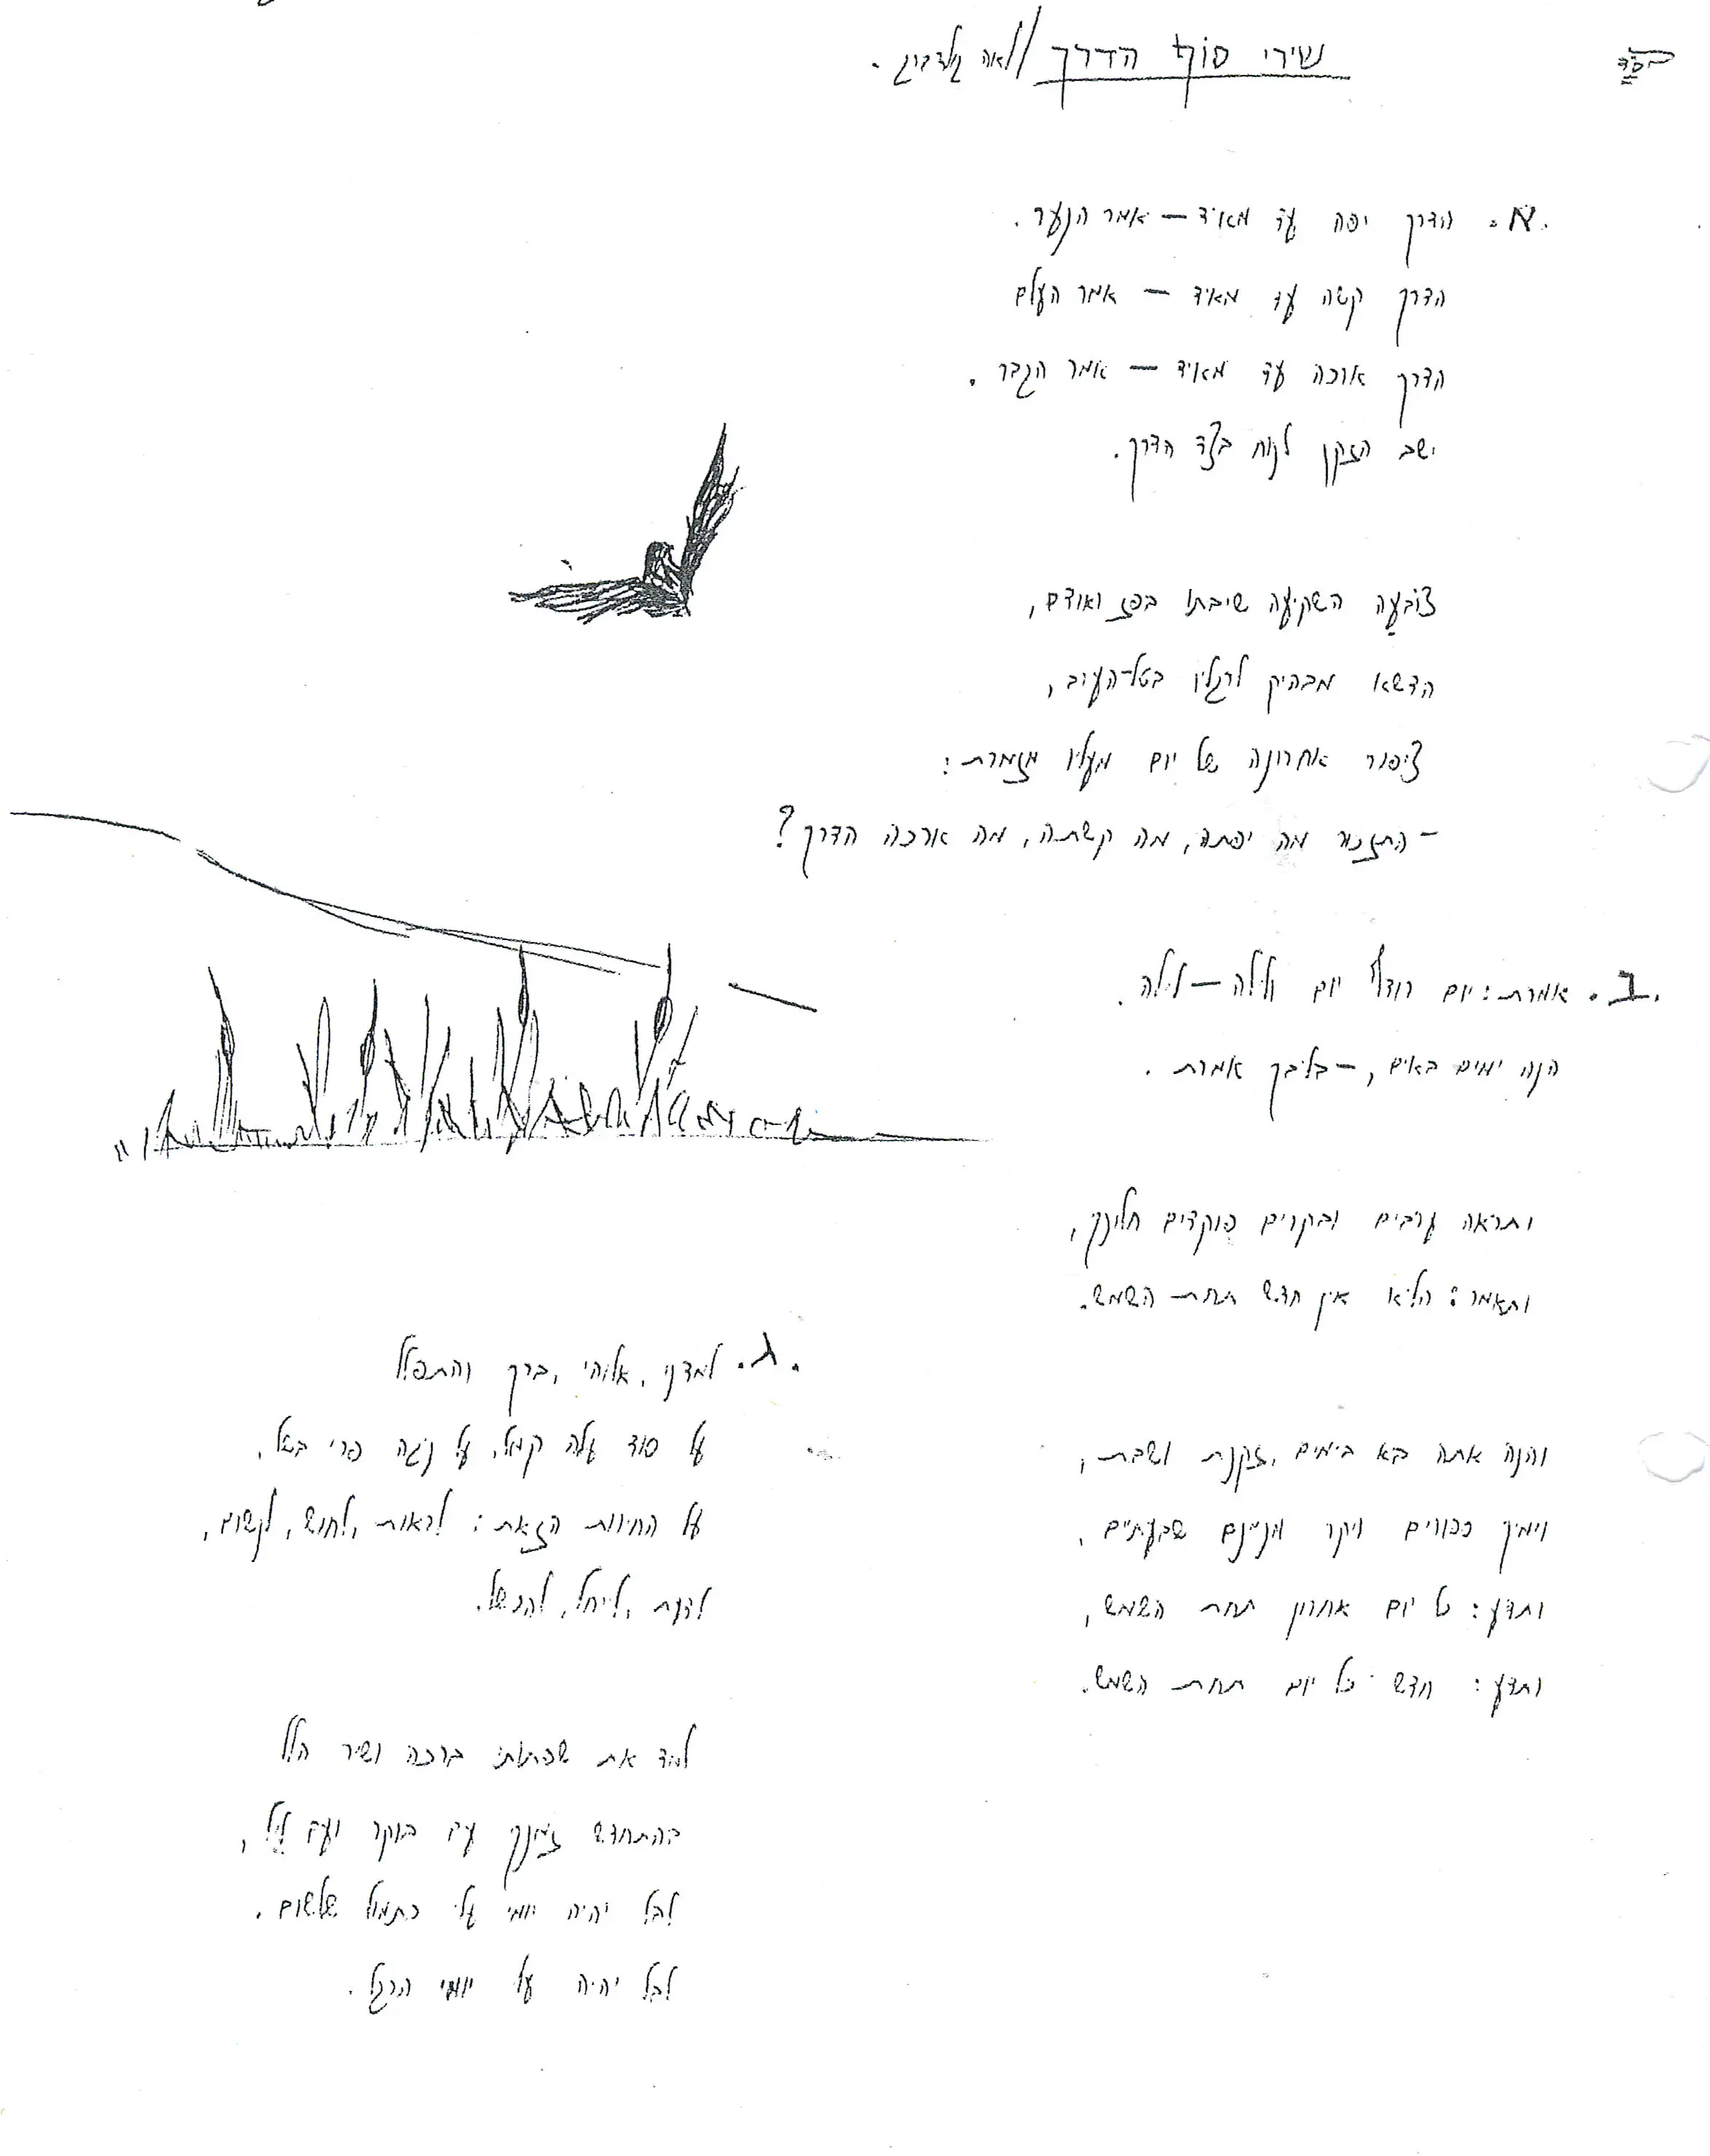 בס"ד
שירי סוף הדרך / לאה גולדברג.
א. הדרך יפה עד מאוד – אמר הנער.
הדרך קשה עד מאוד – אמר העלם
הדרך ארוכה עד מאוד – אמר הגבר.
ישב הזקן לנוח בצד הדרך.
צובעה השקיעה שיבתו בפז ואודם,
הדשא מבהיק לרגליו בטל-הערב,
ציפור אחרונה של יום מעליו מזמרת:
– התזכור מה יפתה, מה קשתה, מה ארכה הדרך?
ב. אמרת: יום רודף יום ולילה – לילה.
הנה ימים באים, – בליבך אמרת.
ותראה ערבים ובקרים פוקדים חלונך,
ותאמר: הלא אין חדש תחת השמש.
והנה אתה בא בימים, זקנת ושבת,
וימיך ספורים ויקר מניינם שבעתיים,
ותדע: כל יום אחרון תחת השמש,
ותדע: חדש כל יום תחת השמש.
ג. למדני, אלוהי, ברך והתפלל
על סוד עלה קמל, על נגה פרי בשל,
על החירות הזאת: לראות, לחוש, לנשום,
לדעת, לייחל, להכשל.
למד את שפתותי ברכה ושיר הלל
בהתחדש זמנך עם בוקר ועם ליל,
לבל יהיה יומי עלי כתמול שלשום.
לבל יהיה עלי יומי הרגל.